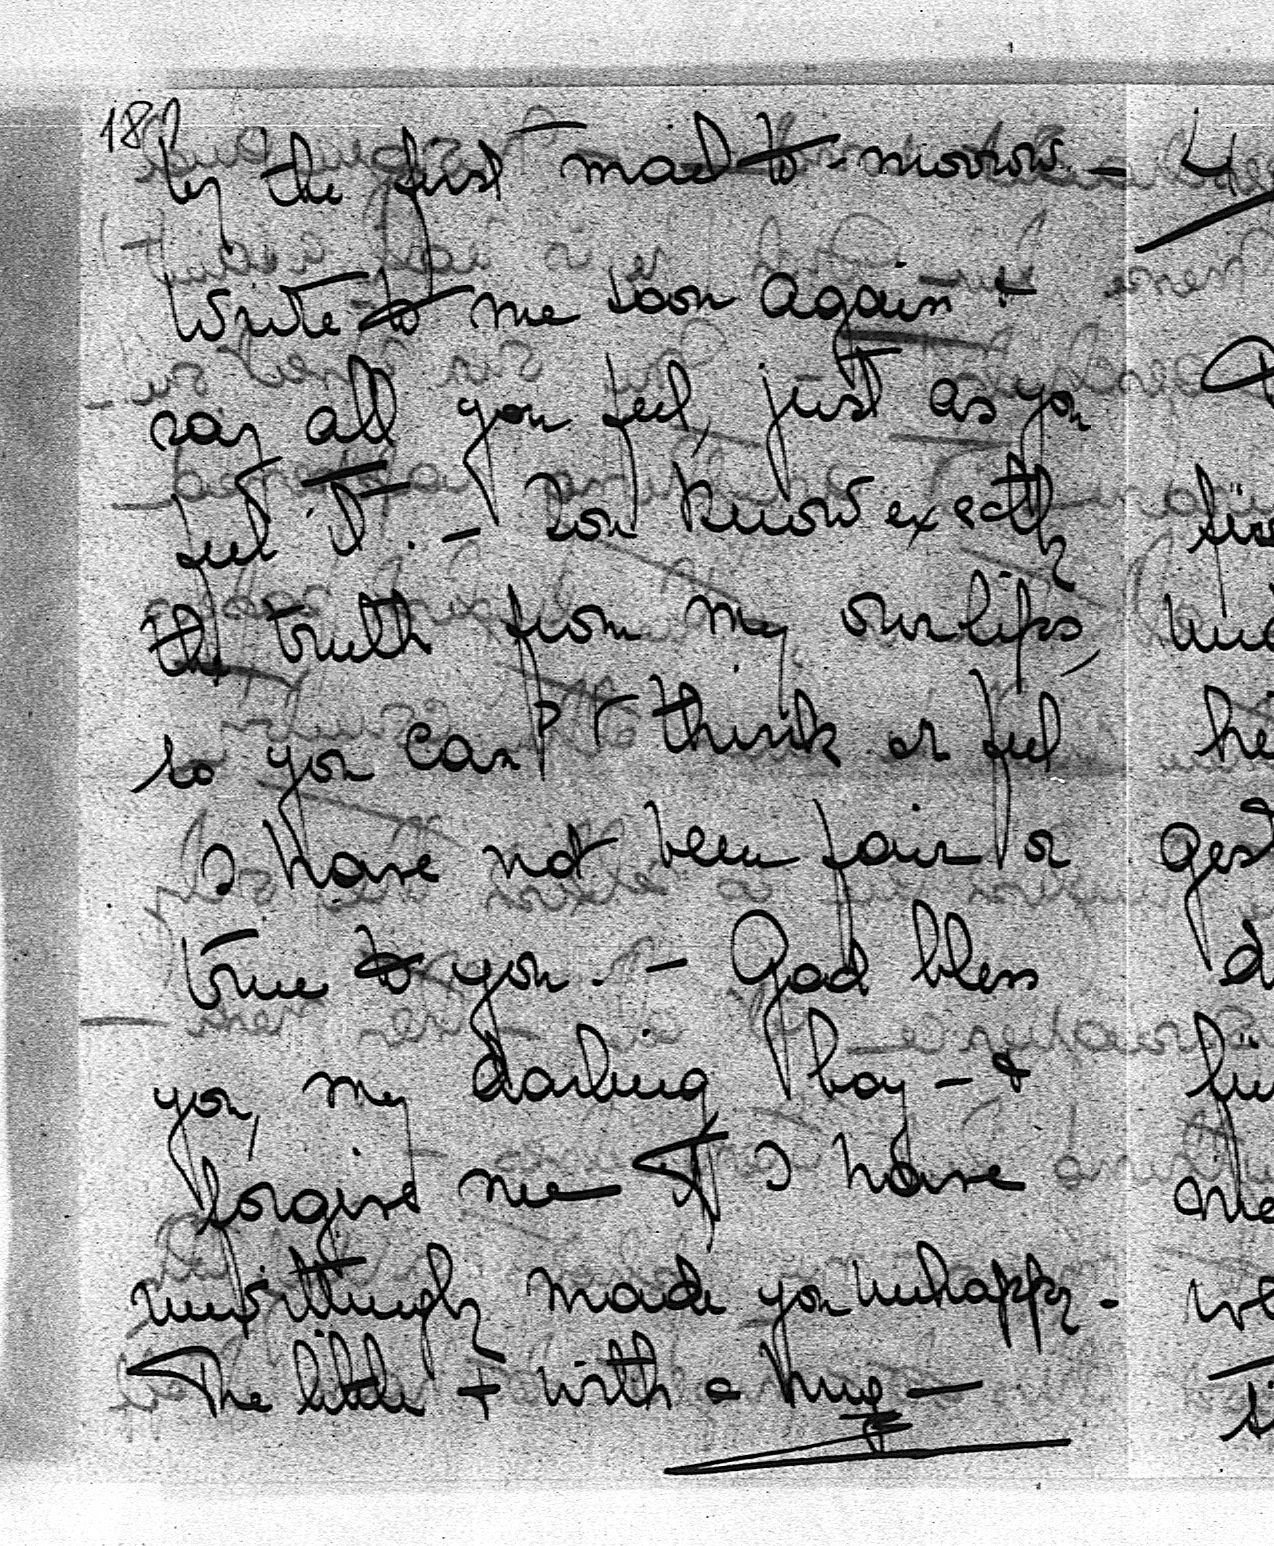 187
by the first mail to-morrow. -
Write to me soon again &
say all you feel, just as you
feel it. - You know exactly
the truth from my own lips,
so you can't think or feel
I have not been fair or
true to you. - God bless
you, my darling boy - &
forgive me if I have
unwittingly made you unhappy.
The little + with a hug -
4
he